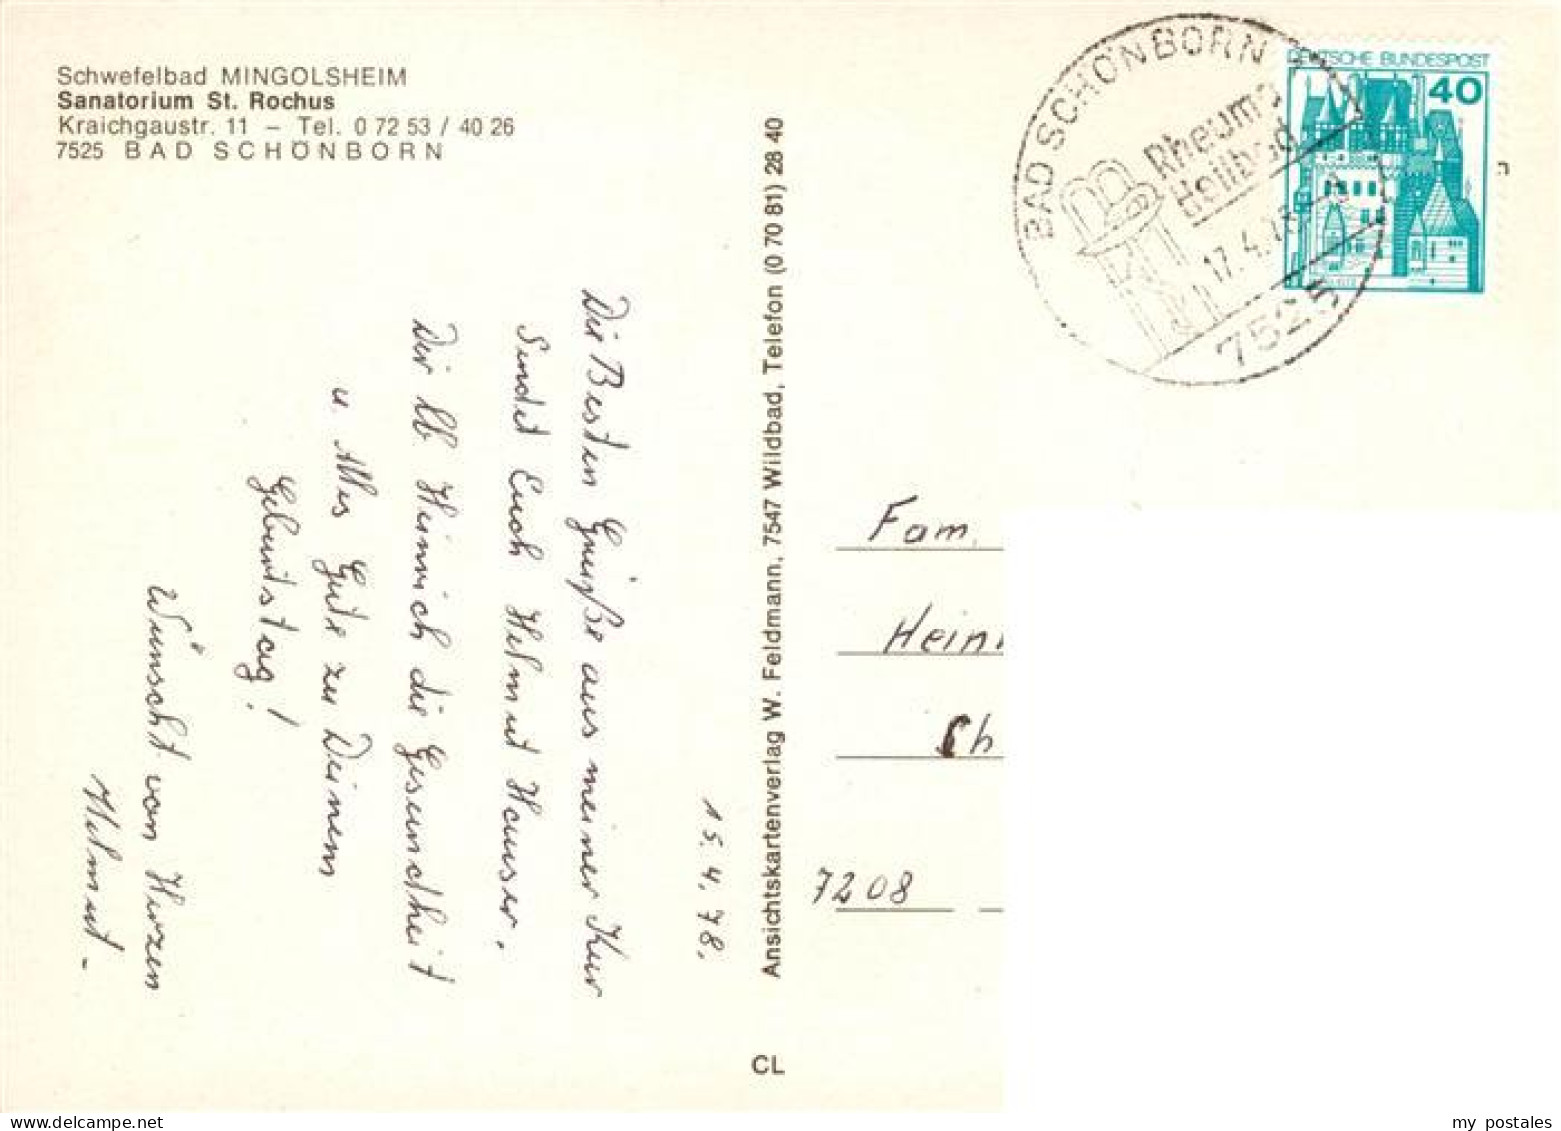 Schwefelbad MINGOLSHEIM
Sanatorium St. Rochus
Kraichgaustr. 11 – Tel. 0 72 53 / 40 26
7525 BAD SCHÖNBORN
15.4.78.
Die Besten Grüße aus meiner Kur
Sendet Euch Helmut Hauser.
Dir lb Heinrich die Gesundheit
u. Alles Gute zu Deinem
Geburtstag!
Wünscht von Herzen
Helmut –
Ansichtskartenverlag W. Feldmann, 7547 Wildbad, Telefon (0 70 81) 28 40
CL
BAD SCHÖNBORN
Rheuma
Heilbad
17.4.78
7525
DEUTSCHE BUNDESPOST
40
Fam.
Hein
Ch
7208
my postales